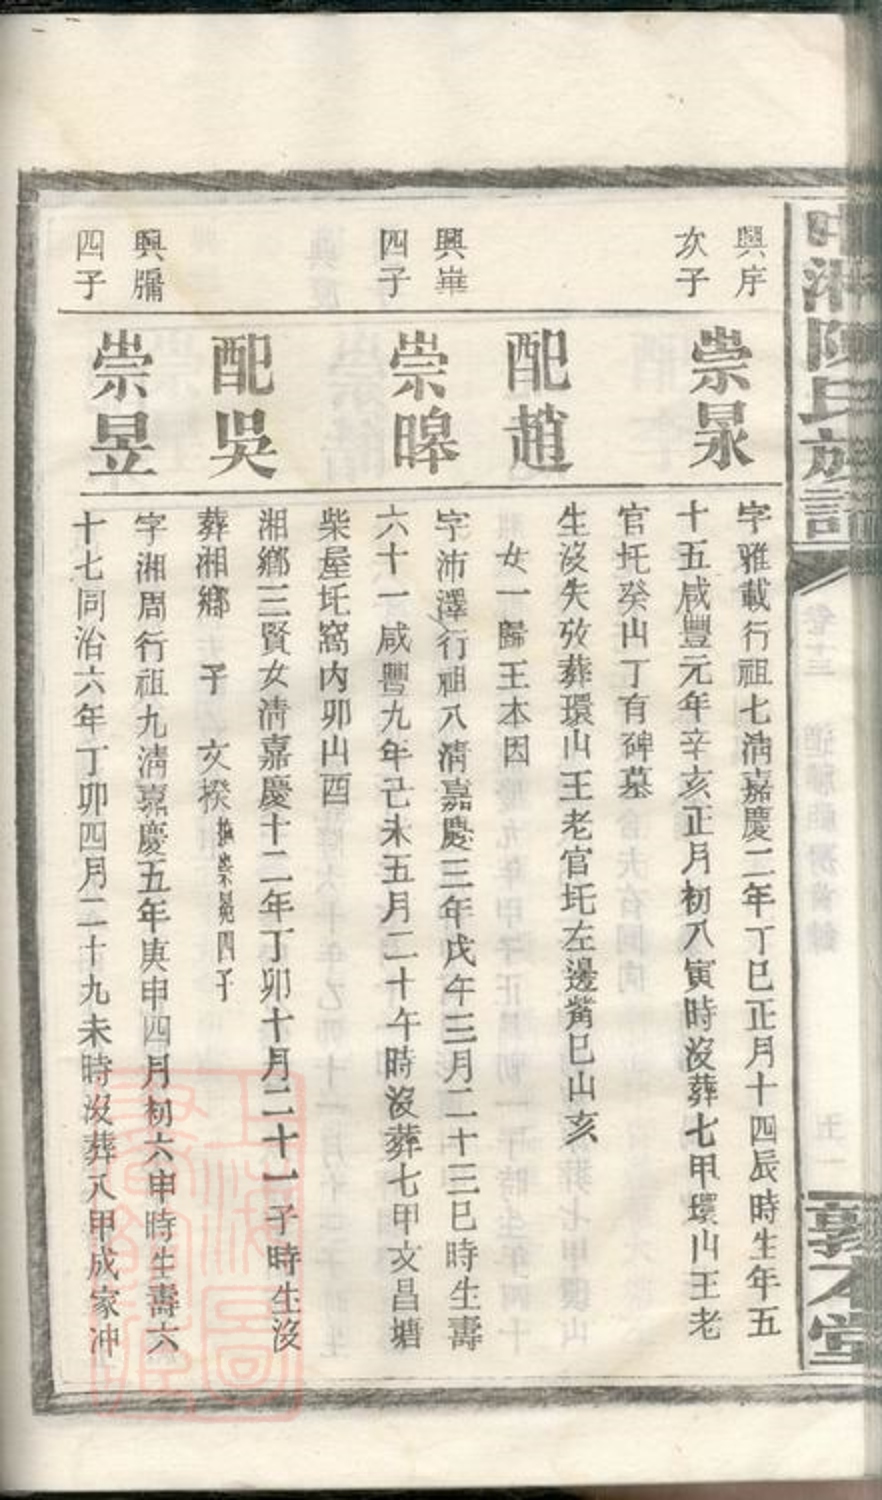 中湘陳氏族譜
卷十三
五一
敦本堂
興序
次子
崇泉
字雅載行祖七淸嘉慶二年丁巳正月十四辰時生年五
十五咸豐元年辛亥正月初八寅時沒葬七甲環山王老
官圫癸山丁有碑墓
配趙
生沒失攷葬環山王老官圫左邊觜巳山亥
女一歸王本因
興崋
四子
崇暤
字沛澤行祖八淸嘉慶三年戊午三月二十三巳時生壽
六十一咸豐九年己未五月二十午時沒葬七甲文昌塘
柴屋圫窩內卯山酉
配吳
湘鄉三賢女淸嘉慶十二年丁卯十月二十一子時生沒
葬湘鄉 子 文揆撫崇晃四子
興牖
四子
崇昱
字湘周行祖九淸嘉慶五年庚申四月初六申時生壽六
十七同治六年丁卯四月二十九未時沒葬八甲成家冲